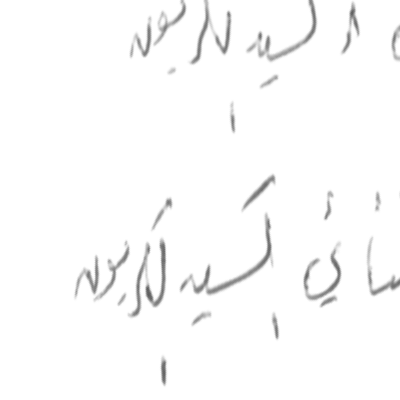 أكسيد الكربون
ثنائي اكسيد الكربون